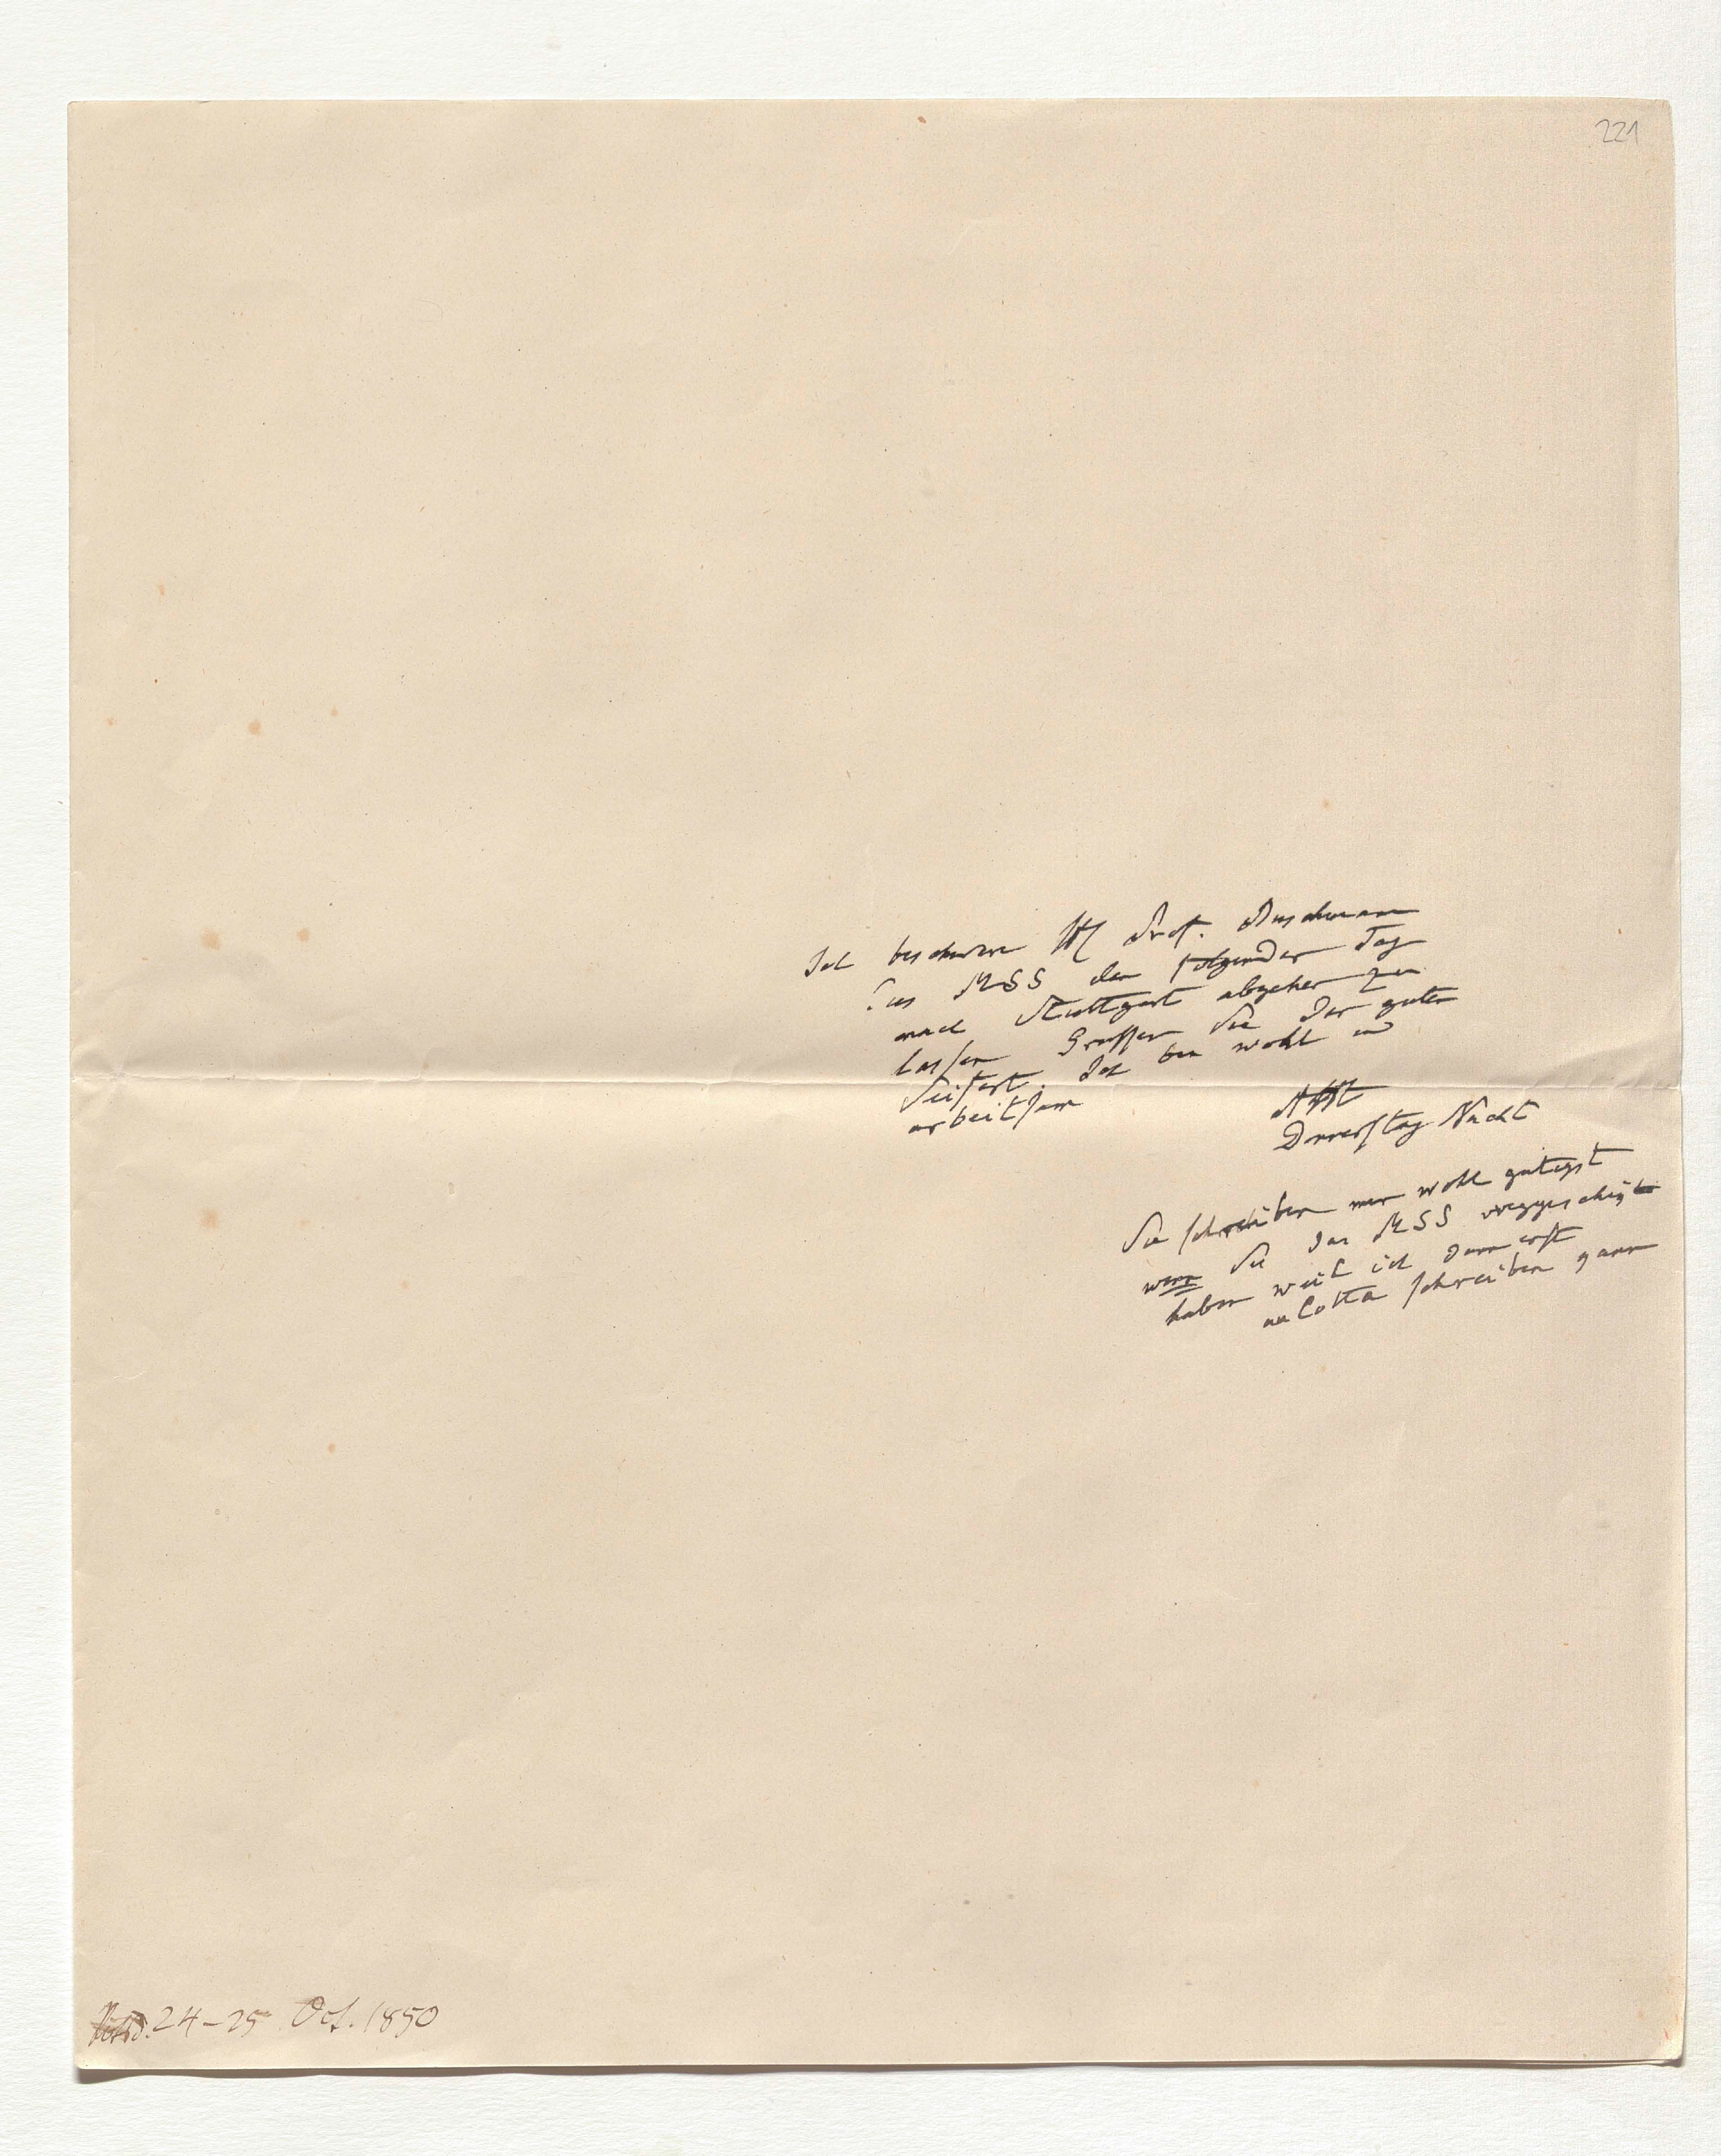 221
Ich beschwöre HE Prof. Buschmann
das MSS den folgenden Tag
nach Stuttgart abgehen zu
lassen Grüssen Sie den guten
Seifert. Ich bin wohl und
arbeitsam
AHt
Donnerstag Nacht
Sie schreiben mir wohl gütigst
wenn Sie das MSS weggeschikt
haben weil ich dann erst
an Cotta schreiben kann
24-25 Oct. 1850